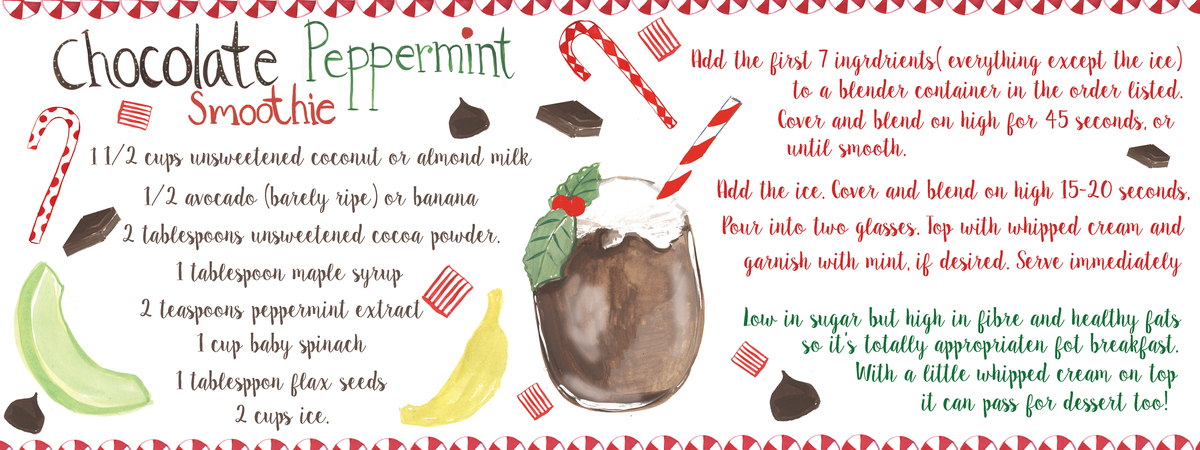 Chocolate Peppermint
Smoothie
1 1/2 cups unsweetened coconut or almond milk
1/2 avocado (barely ripe) or banana
2 tablespoons unsweetened cocoa powder.
1 tablespoon maple syrup
2 teaspoons peppermint extract
1 cup baby spinach
1 tablesppon flax seeds
2 cups ice.
Add the first 7 ingrdrients( everything except the ice)
to a blender container in the order listed.
Cover and blend on high for 45 seconds, or
until smooth.
Add the ice. Cover and blend on high 15-20 seconds,
Pour into two glasses. Top with whipped cream and
garnish with mint, if desired. Serve immediately
Low in sugar but high in fibre and healthy fats
so it's totally appropriaten fot breakfast.
With a little whipped cream on top
it can pass for dessert too!